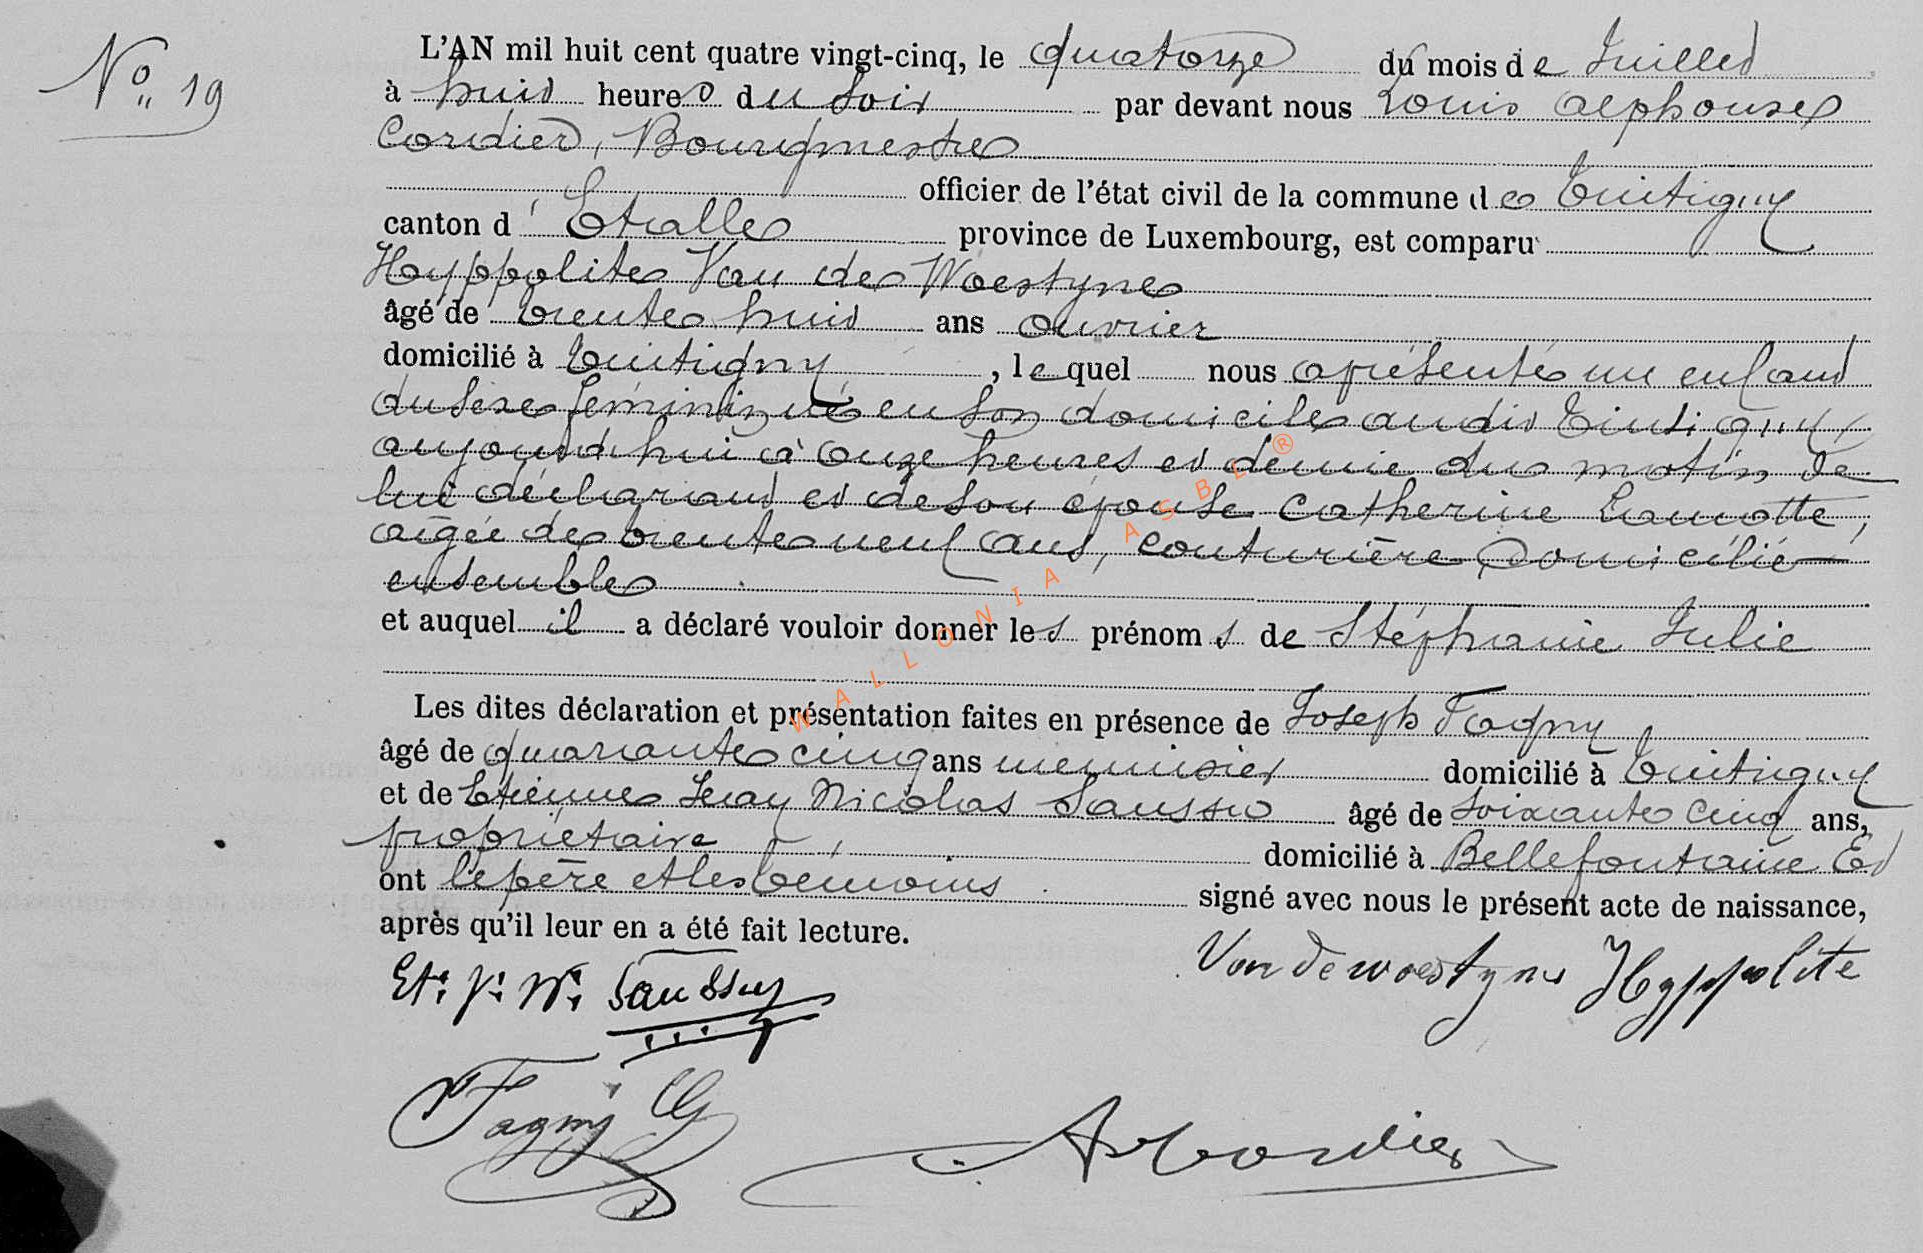 No 19
L'AN mil huit cent quatre vingt-cinq, le quatorze du mois de Juillet
à huit heures du soir par devant nous Louis Alphonse
Cordier, Bourgmestre
officier de l'état civil de la commune de Tintigny
canton d'Etalle province de Luxembourg, est comparu
Hyppolite Van de Woestyne
âgé de trente huit ans ouvrier
domicilié à Tintigny, lequel nous a présenté un enfant
du sexe féminin né en son domicile audit Tintigny
aujourd'hui à onze heures et demie du matin de
lui déclarant et de son épouse Catherine Lamotte,
âgée de trente neuf ans, couturière domicilié
ensemble
et auquel il a déclaré vouloir donner les prénoms de Stéphanie Julie
Les dites déclaration et présentation faites en présence de Joseph Fagny
âgé de quarante cinq ans menuisier domicilié à Tintigny
et de Etienne Jean Nicolas Saussu âgé de soixante cinq ans,
propriétaire, domicilié à Bellefontaine Et
ont le père et les témoins signé avec nous le présent acte de naissance,
après qu'il leur en a été fait lecture.
Et. J. N. Saussuy
Van de woestyne Hyppolite
Fagny
A Cordier
WALLONIA ASBL ®